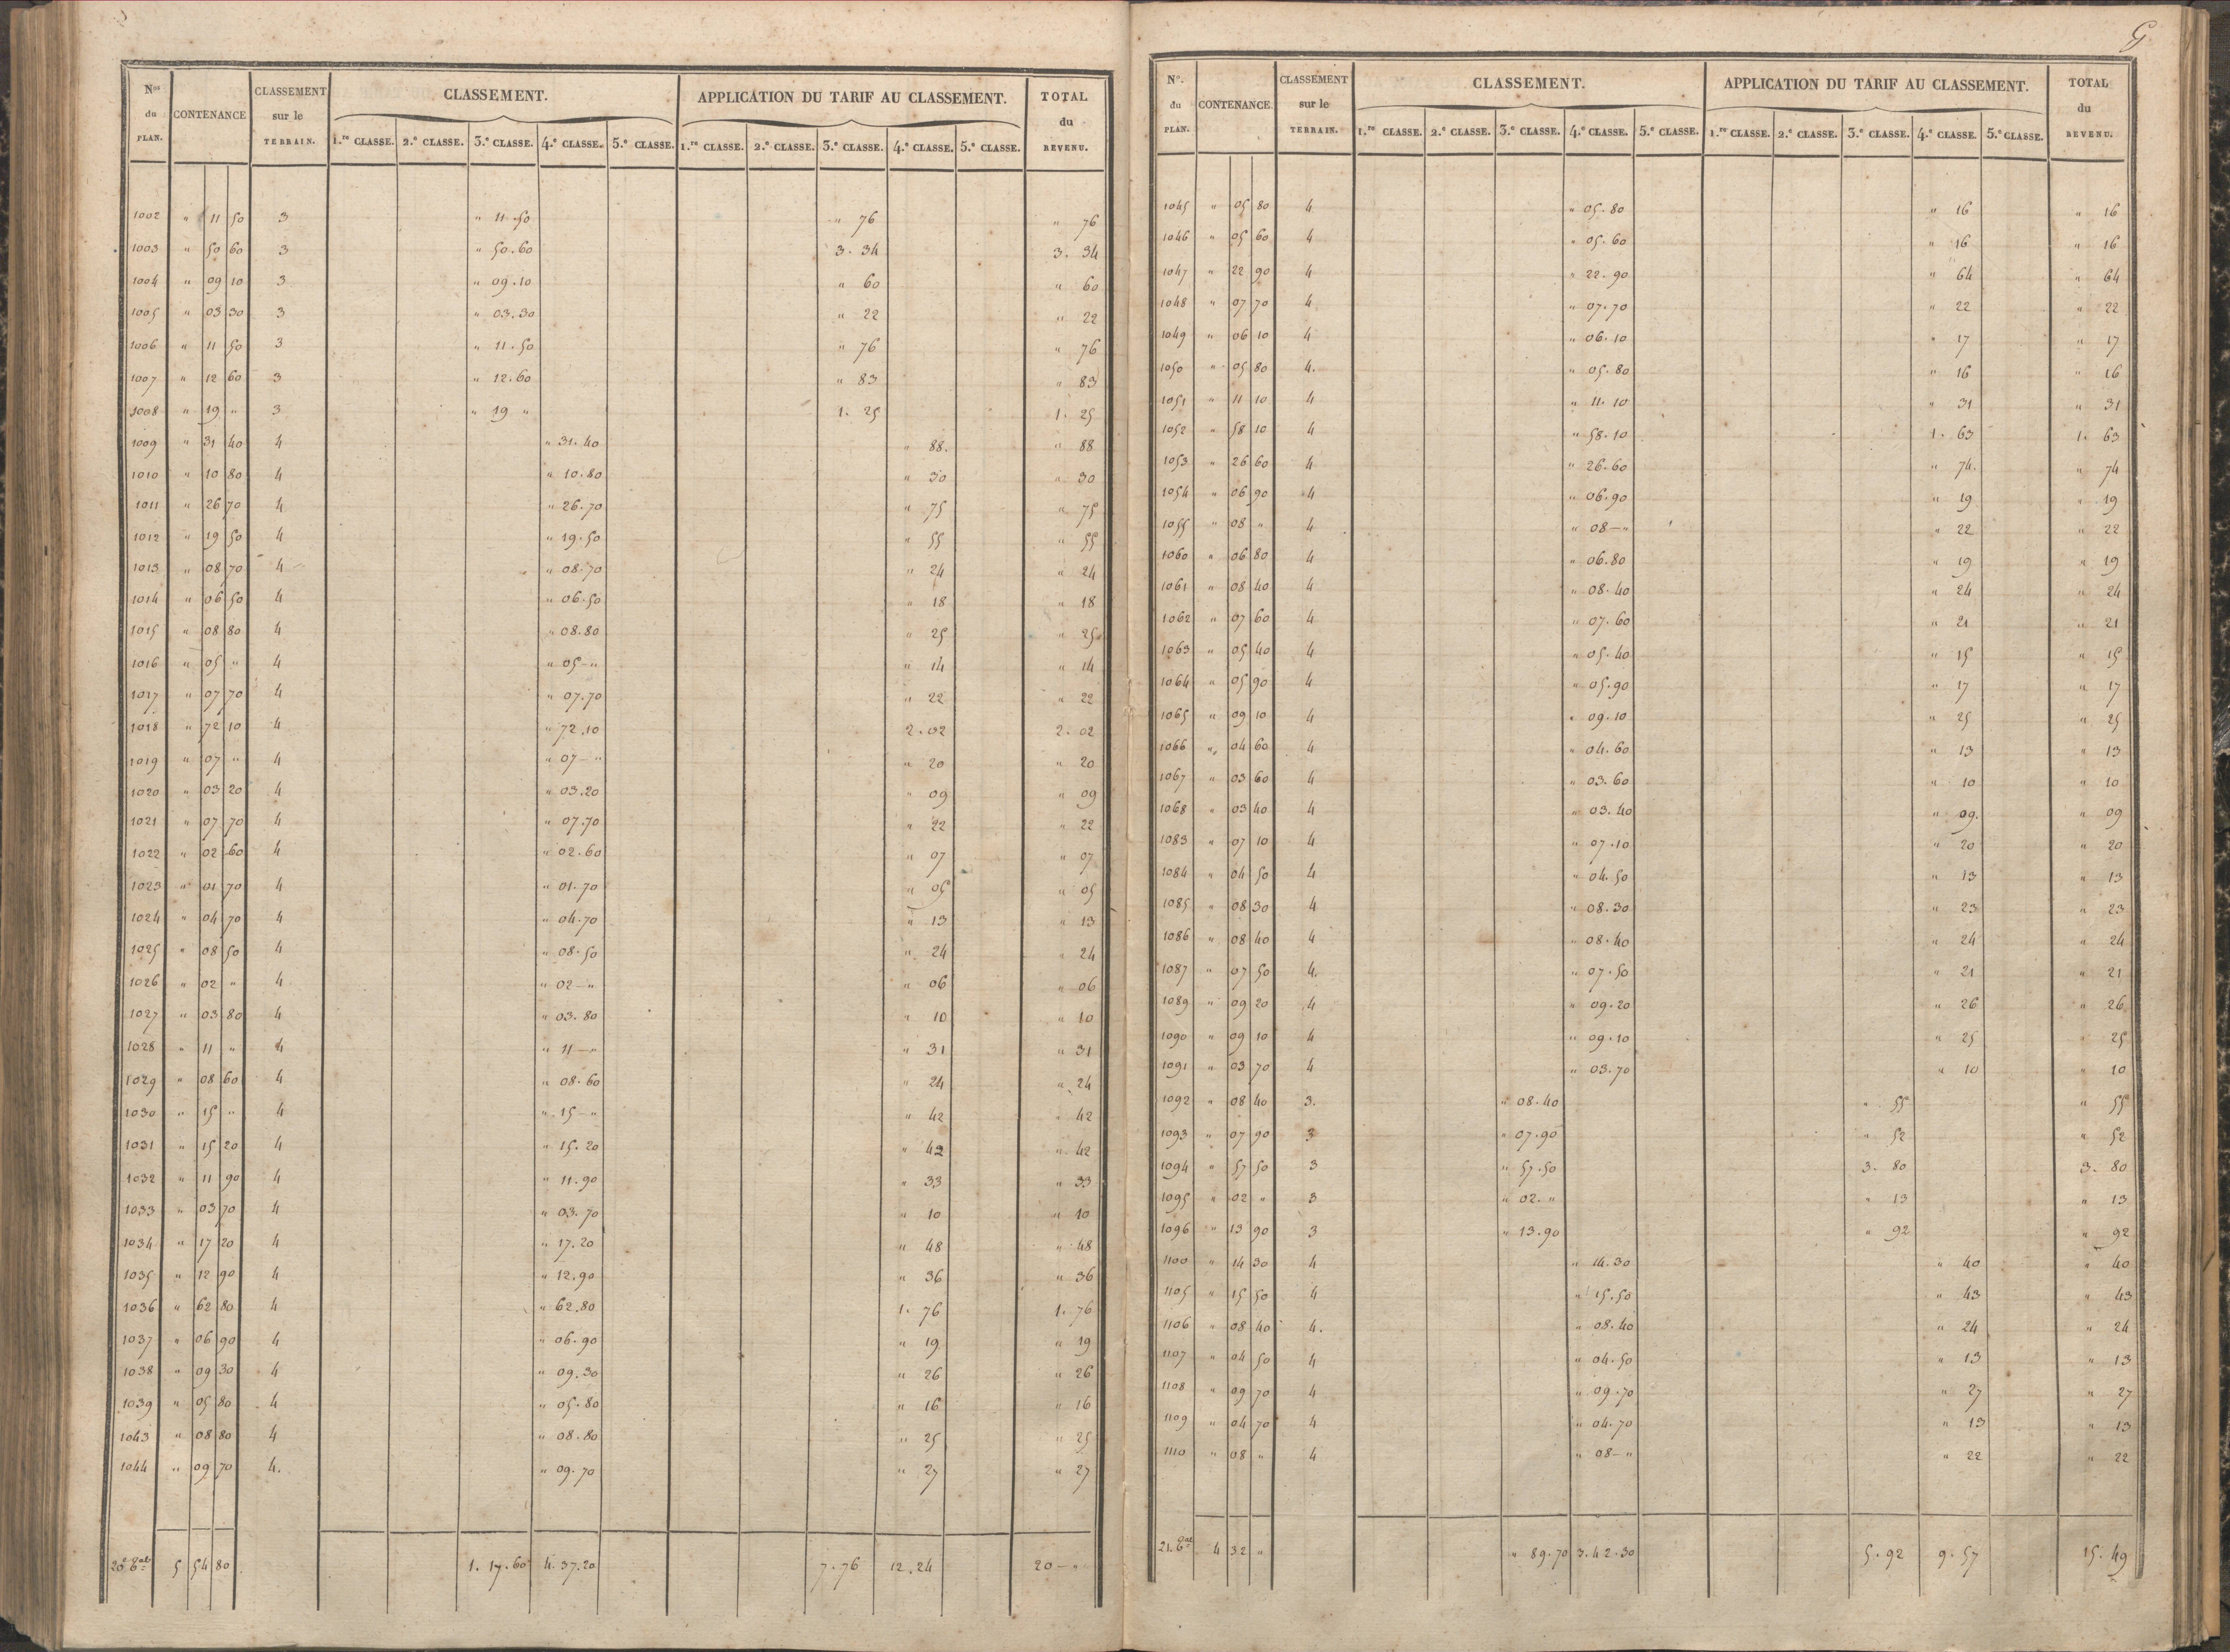 Nos du PLAN. CONTENANCE CLASSEMENT sur le TERRAIN. CLASSEMENT. APPLICATION DU TARIF AU CLASSEMENT. TOTAL du REVENU.
1.re CLASSE. 2.e CLASSE. 3.e CLASSE. 4.e CLASSE. 5.e CLASSE. 1.re CLASSE. 2.e CLASSE. 3.e CLASSE. 4.e CLASSE. 5.e CLASSE.
1002 " 11 50 3 " 11.50 " 76 " 76
1003 " 50 60 3 " 50.60 3. 34 3. 34
1004 " 09 10 3 " 09.10 " 60 " 60
1005 " 03 30 3 " 03.30 " 22 " 22
1006 " 11 50 3 " 11.50 " 76 " 76
1007 " 12 60 3 " 12.60 " 83 " 83
1008 " 19 " 3 " 19 " 1. 25 1. 25
1009 " 31 40 4 " 31.40 " 88. " 88
1010 " 10 80 4 " 10.80 " 30 " 30
1011 " 26 70 4 " 26.70 " 75 " 75
1012 " 19 50 4 " 19.50 " 55 " 55
1013 " 08 70 4 " 08.70 " 24 " 24
1014 " 06 50 4 " 06.50 " 18 " 18
1015 " 08 80 4 " 08.80 " 25 " 25
1016 " 05 " 4 " 05-" " 14 " 14
1017 " 07 70 4 " 07.70 " 22 " 22
1018 " 72 10 4 " 72.10 2.02 2. 02
1019 " 07 " 4 " 07-" " 20 " 20
1020 " 03 20 4 " 03.20 " 09 " 09
1021 " 07 70 4 " 07.70 " 22 " 22
1022 " 02 60 4 " 02.60 " 07 " 07
1023 " 01 70 4 " 01.70 " 05 " 05
1024 " 04 70 4 " 04.70 " 13 " 13
1025 " 08 50 4 " 08.50 " 24 " 24
1026 " 02 " 4 " 02-" " 06 " 06
1027 " 03 80 4 " 03.80 " 10 " 10
1028 " 11 " 4 " 11-" " 31 " 31
1029 " 08 60 4 " 08.60 " 24 " 24
1030 " 15 " 4 " 15-" " 42 " 42
1031 " 15 20 4 " 15.20 " 42 " 42
1032 " 11 90 4 " 11.90 " 33 " 33
1033 " 03 70 4 " 03.70 " 10 " 10
1034 " 17 20 4 " 17.20 " 48 " 48
1035 " 12 90 4 " 12.90 " 36 " 36
1036 " 62 80 4 " 62.80 1. 76 1. 76
1037 " 06 90 4 " 06.90 " 19 " 19
1038 " 09 30 4 " 09.30 " 26 " 26
1039 " 05 80 4 " 05.80 " 16 " 16
1043 " 08 80 4 " 08.80 " 25 " 25
1044 " 09 70 4. " 09.70 " 27 " 27
5 54 80 1. 17.60 4. 37.20 7.76 12.24 20-"
No. du PLAN. CONTENANCE. CLASSEMENT sur le TERRAIN. CLASSEMENT. APPLICATION DU TARIF AU CLASSEMENT. TOTAL du REVENU.
1.re CLASSE. 2.e CLASSE. 3.e CLASSE. 4.e CLASSE. 5.e CLASSE. 1.re CLASSE. 2.e CLASSE. 3.e CLASSE. 4.e CLASSE. 5.e CLASSE.
1045 " 05 80 4 " 05.80 " 16 " 16
1046 " 05 60 4 " 05.60 " 16 " 16
1047 " 22 90 4 " 22.90 " 64 " 64
1048 " 07 70 4 " 07.70 " 22 " 22
1049 " 06 10 4 " 06.10 " 17 " 17
1050 " 05 80 4. " 05.80 " 16 " 16
1051 " 11 10 4 " 11.10 " 31 " 31
1052 " 58 10 4 " 58.10 1. 63 1. 63
1053 " 26 60 4 " 26.60 " 74. " 74
1054 " 06 90 4 " 06.90 " 19 " 19
1055 " 08 " 4 " 08-" " 22 " 22
1060 " 06 80 4 " 06.80 " 19 " 19
1061 " 08 40 4 " 08.40 " 24 " 24
1062 " 07 60 4 " 07.60 " 21 " 21
1063 " 05 40 4 " 05.40 " 15 " 15
1064 " 05 90 4 " 05.90 " 17 " 17
1065 " 09 10 4 " 09.10 " 25 " 25
1066 " 04 60 4 " 04.60 " 13 " 13
1067 " 03 60 4 " 03.60 " 10 " 10
1068 " 03 40 4 " 03.40 " 09. " 09
1083 " 07 10 4 " 07.10 " 20 " 20
1084 " 04 50 4 " 04.50 " 13 " 13
1085 " 08 30 4 " 08.30 " 23 " 23
1086 " 08 40 4 " 08.40 " 24 " 24
1087 " 07 50 4. " 07.50 " 21 " 21
1089 " 09 20 4 " 09.20 " 26 " 26
1090 " 09 10 4 " 09.10 " 25 " 25
1091 " 03 70 4 " 03.70 " 10 " 10
1092 " 08 40 3. " 08.40 " 55 " 55
1093 " 07 90 3 " 07.90 " 52 " 52
1094 " 57 50 3 " 57.50 3. 80 3. 80
1095 " 02 " 3 " 02." " 13 " 13
1096 " 13 90 3 " 13.90 " 92 " 92
1100 " 14 30 4 " 14.30 " 40 " 40
1105 " 15 50 4 " 15.50 " 43 " 43
1106 " 08 40 4. " 08.40 " 24 " 24
1107 " 04 50 4 " 04.50 " 13 " 13
1108 " 09 70 4 " 09.70 " 27 " 27
1109 " 04 70 4 " 04.70 " 13 " 13
1110 " 08 " 4 " 08-" " 22 " 22
4 32 " " 89.70 3.42.30 5.92 9.57 15.49